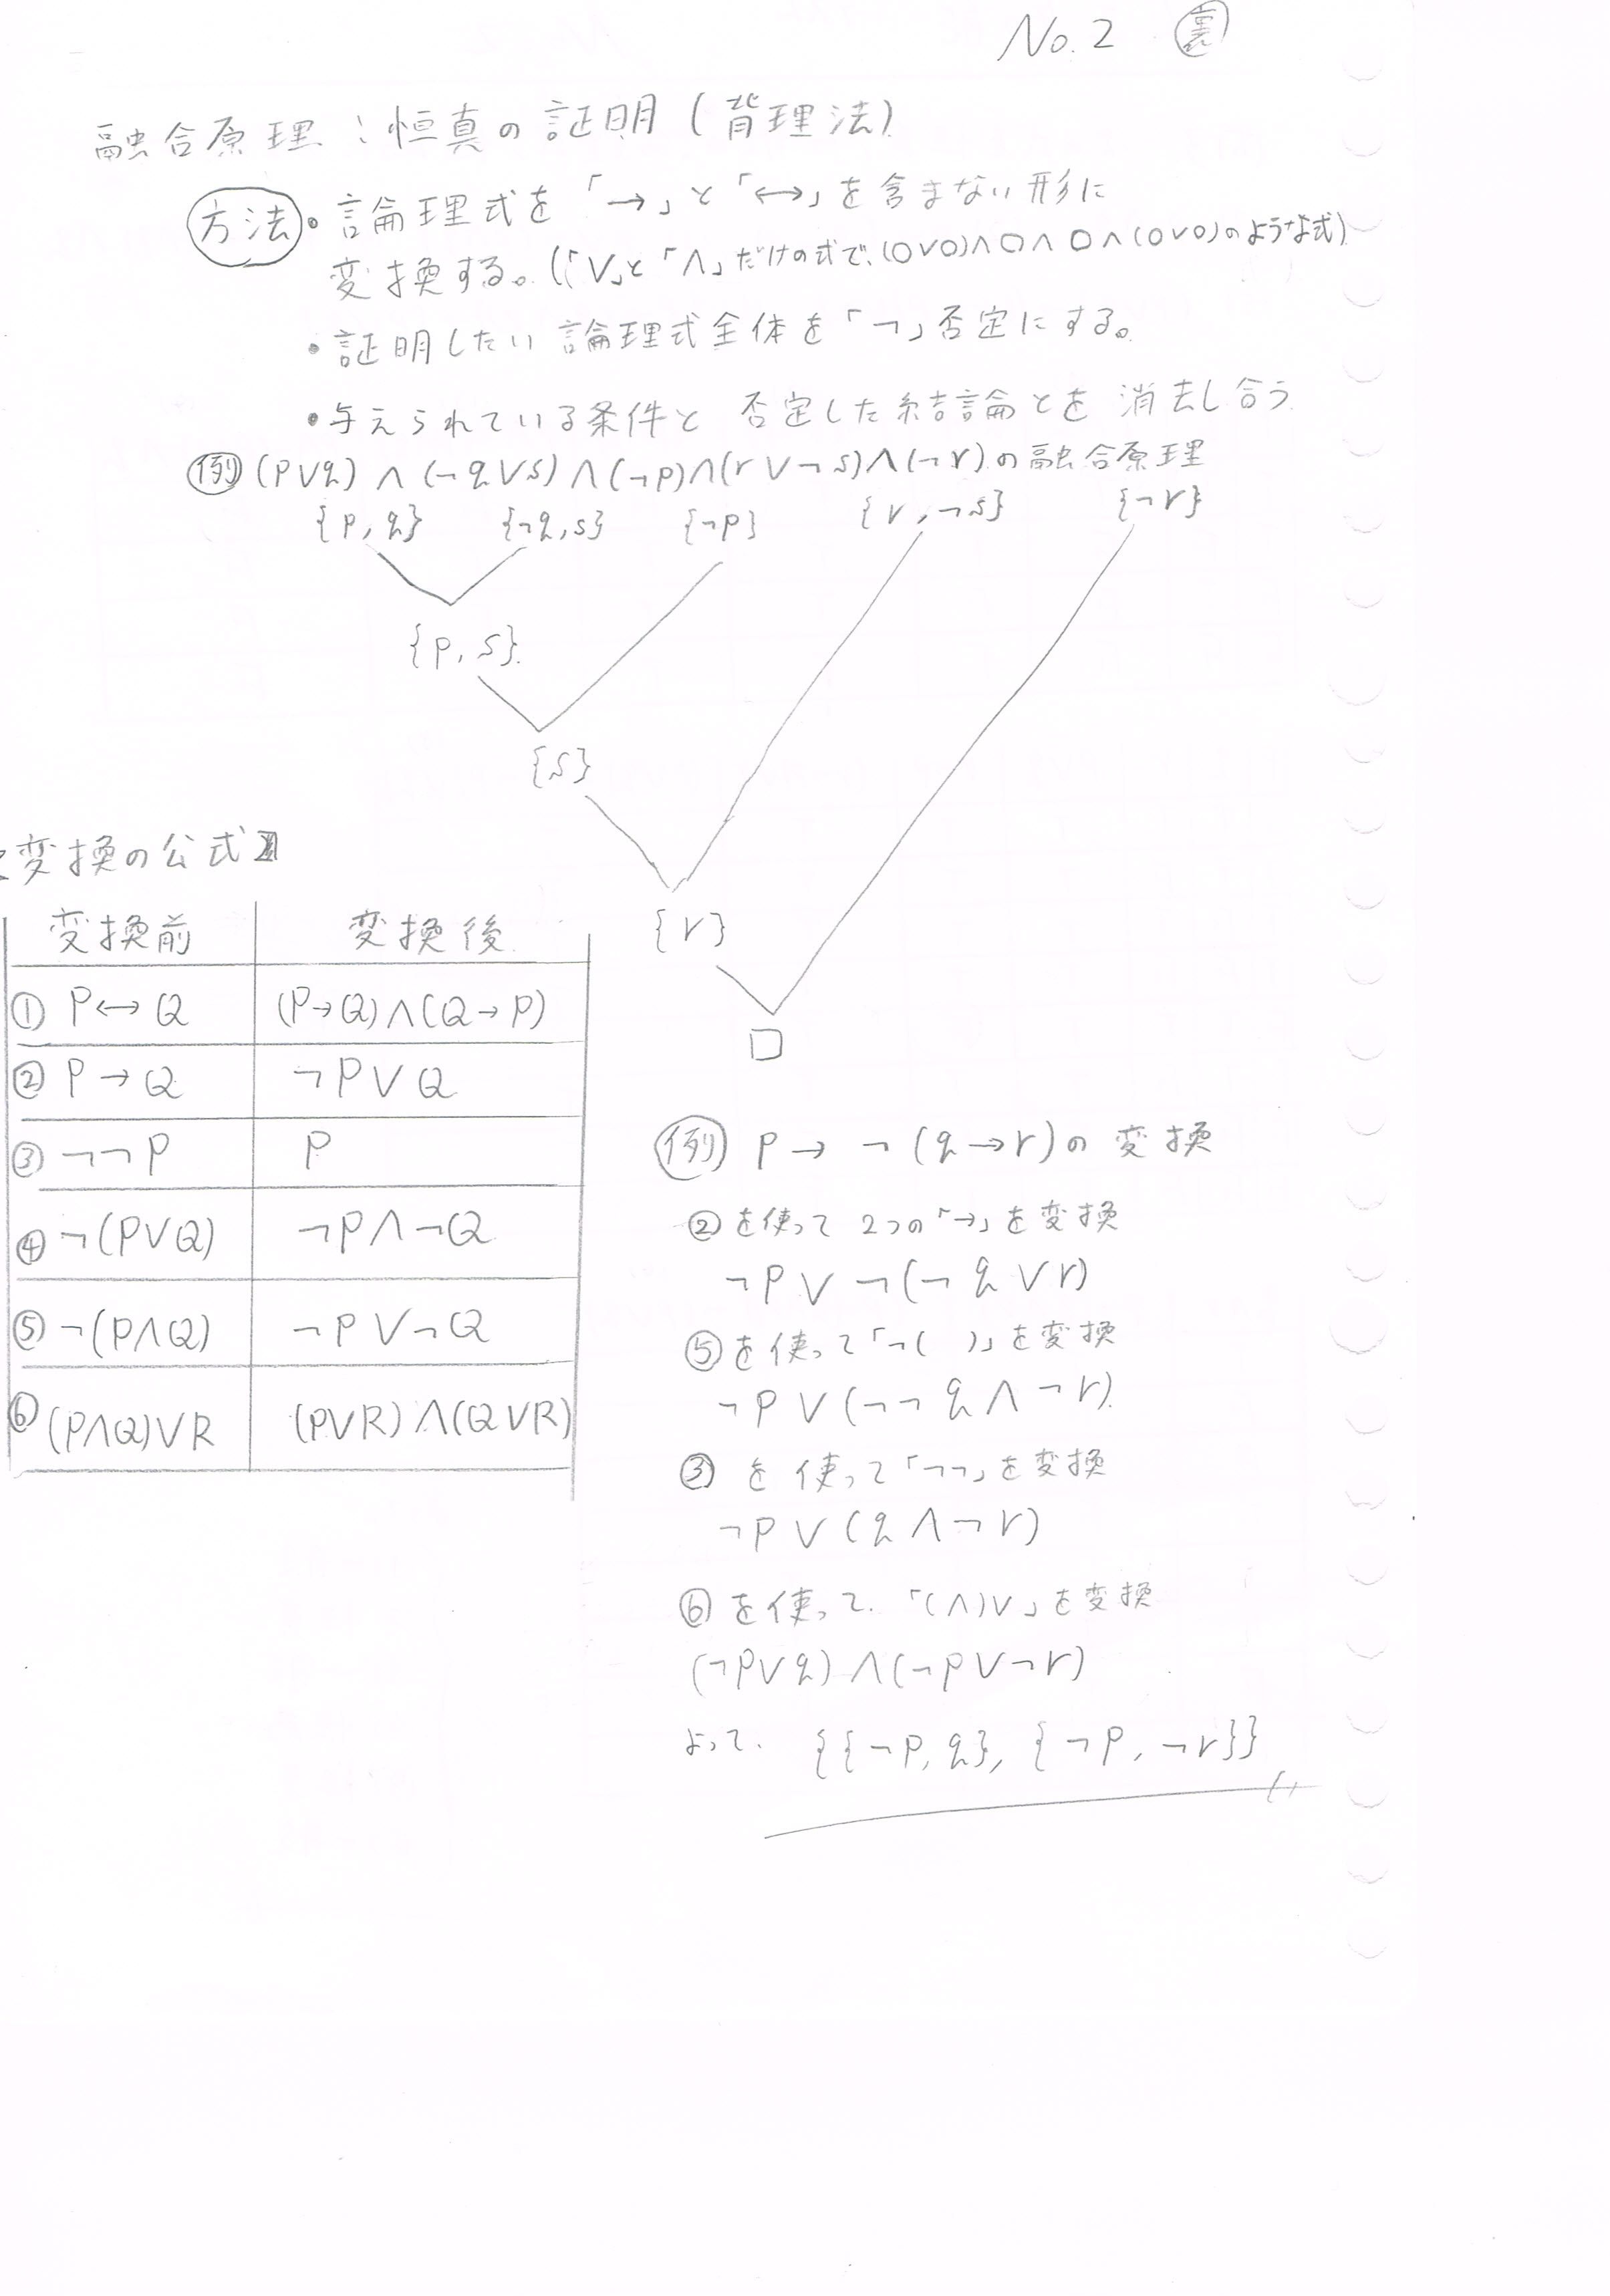 No.2 裏
融合原理:恒真の証明(背理法)
方法・論理式を「→」と「↔」を含まない形に
変換する。(「∨」と「∧」だけの式で、(○∨○)∧○∧○∧(○∨○)のような式)
・証明したい論理式全体を「¬」否定にする。
・与えられている条件と否定した結論とを消去し合う
例 (p∨q)∧(¬q∨s)∧(¬p)∧(r∨¬s)∧(¬r)の融合原理
{p,q} {¬q,s} {¬p} {r,¬s} {¬r}
{p,s}
{s}
{r}
□
変換の公式
変換前 変換後
① P↔Q (P→Q)∧(Q→P)
② P→Q ¬P∨Q
③ ¬¬P P
④ ¬(P∨Q) ¬P∧¬Q
⑤ ¬(P∧Q) ¬P∨¬Q
⑥ (P∧Q)∨R (P∨R)∧(Q∨R)
例 p→¬(q→r)の変換
②を使って2つの「→」を変換
¬p∨¬(¬q∨r)
⑤を使って「¬( )」を変換
¬p∨(¬¬q∧¬r)
③を使って「¬¬」を変換
¬p∨(q∧¬r)
⑥を使って.「(∧)∨」を変換
(¬p∨q)∧(¬p∨¬r)
よって. {{¬p,q},{¬p,¬r}}